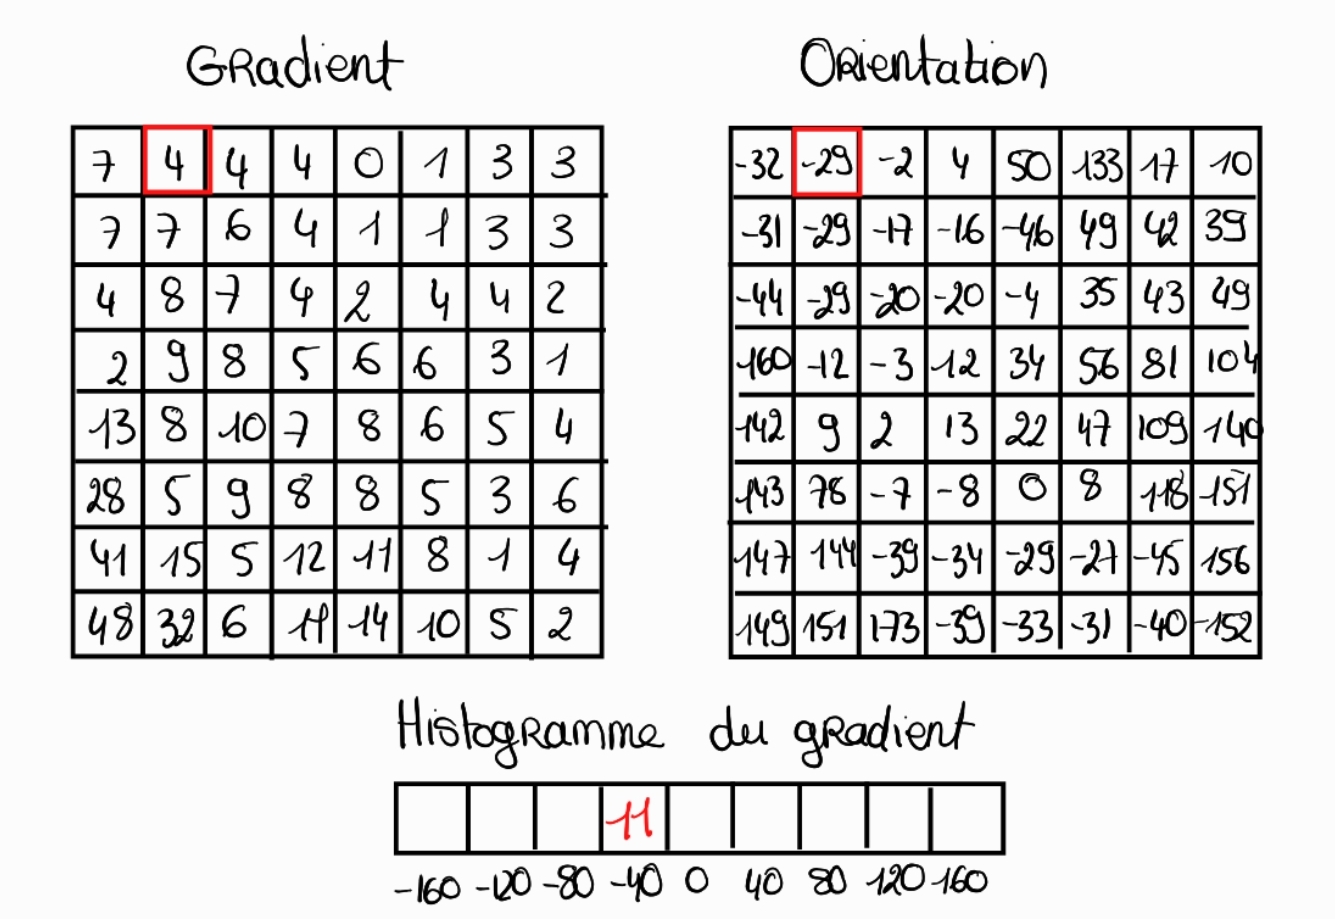 Gradient
Orientation
7 4 4 4 0 1 3 3
7 7 6 4 1 1 3 3
4 8 7 4 2 4 4 2
2 9 8 5 6 6 3 1
13 8 10 7 8 6 5 4
28 5 9 8 8 5 3 6
41 15 5 12 11 8 1 4
48 32 6 11 14 10 5 2
-32 -29 -2 4 50 133 17 10
-31 -29 -17 -16 -46 49 42 39
-44 -29 -20 -20 -4 35 43 49
160 -12 -3 12 34 56 81 104
142 9 2 13 22 47 109 140
143 78 -7 -8 0 8 118 151
147 144 -39 -34 -29 -27 -45 156
149 151 173 -39 -33 -31 -40 -152
Histogramme du gradient
11
-160 -120 -80 -40 0 40 80 120 160